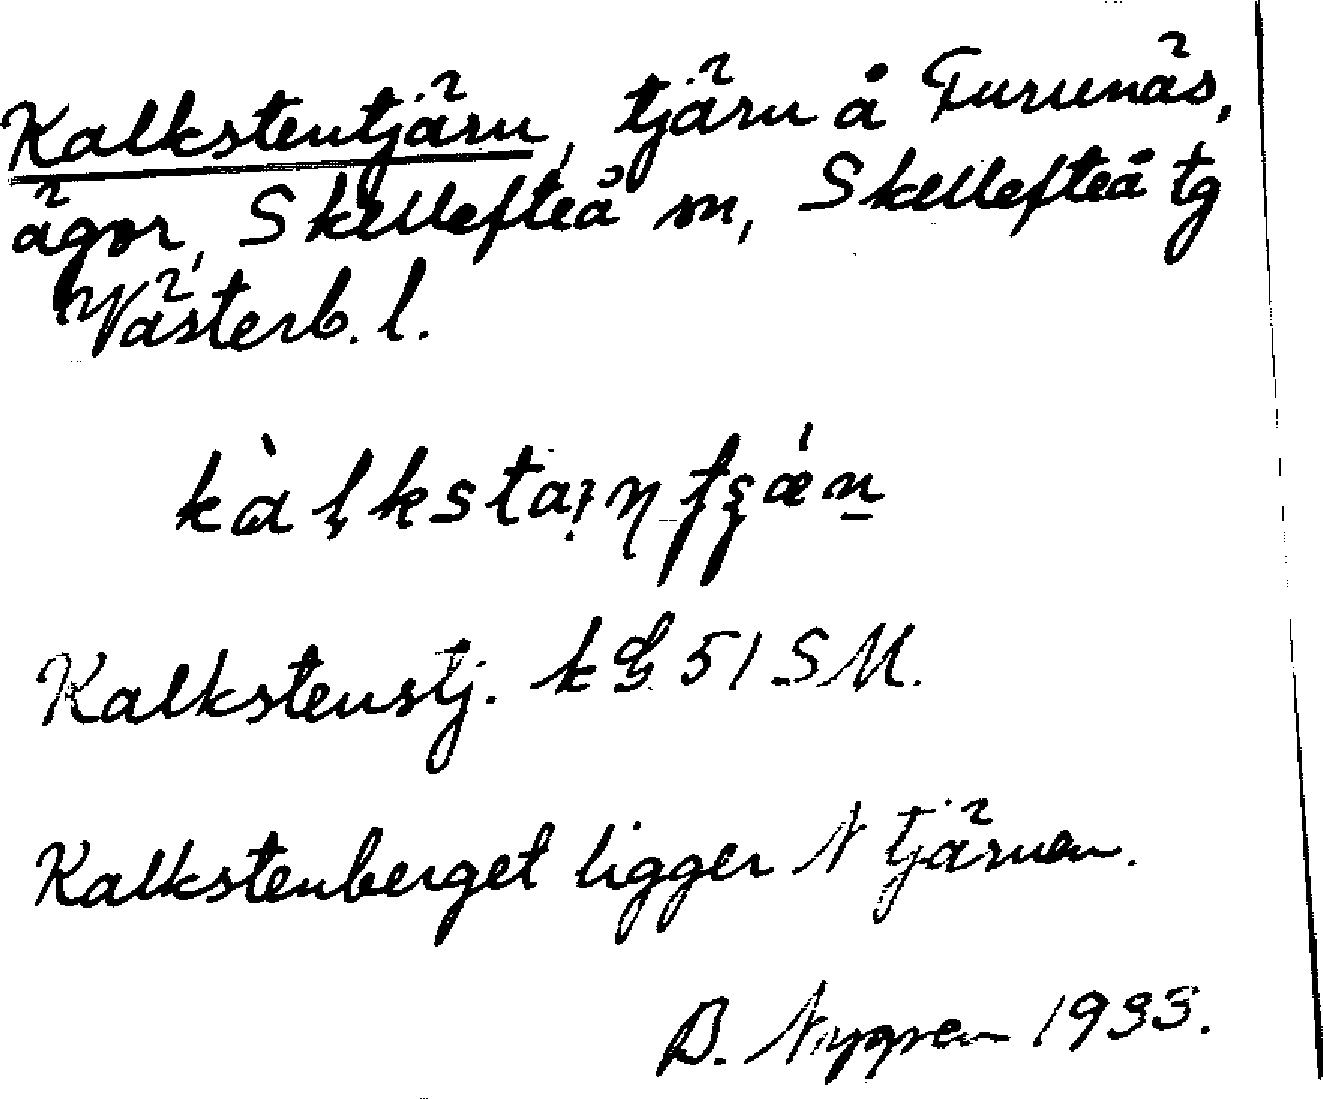 Kalkstentjärn, tjärn å Furunäs,
ägor, Skellefteå sn, Skellefteå tg
Västerb. l.
Kalkstenstj. 51 SM.
Kalkstenberget ligger N tjärnen.
B. Nygren 1933.